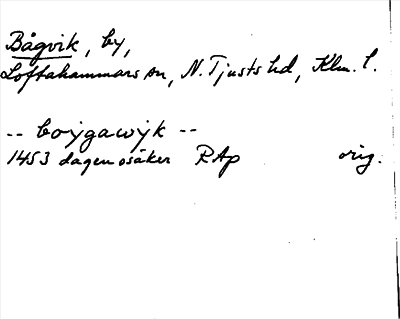 Bågvik, by,
Loftahammars sn, N. Tjusts hd, Klm. l.
-- boÿgawÿk --
1453 dagen osäker RAp orig.